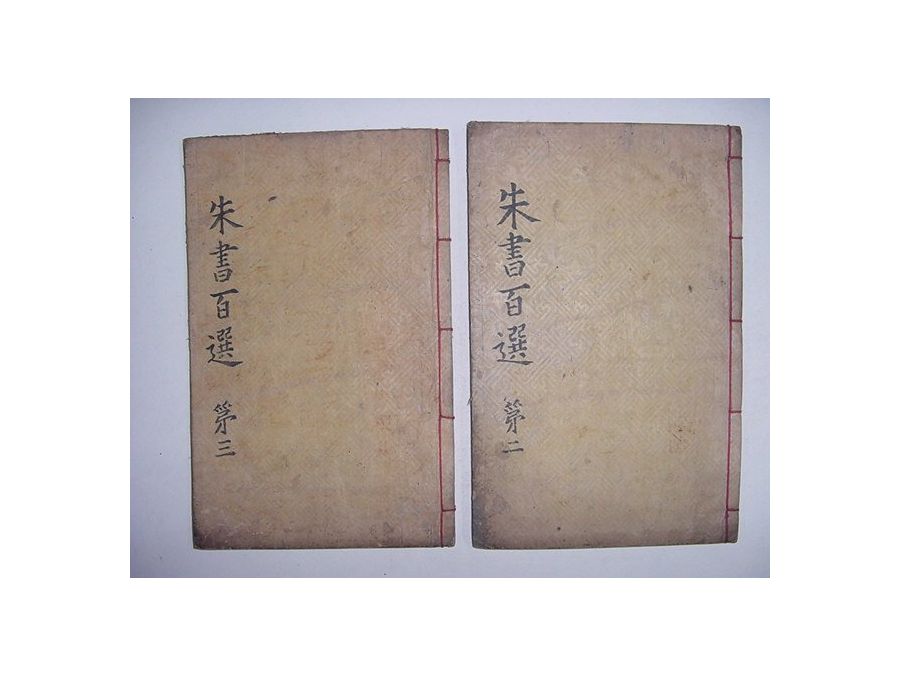 朱書百選 第三
朱書百選 第二